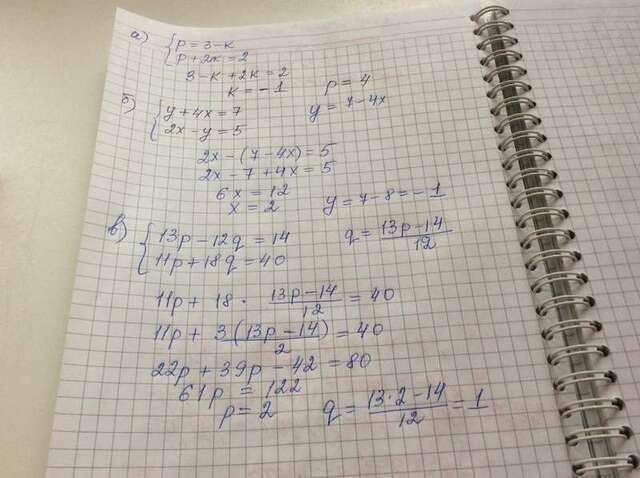 а) { p = 3 - к
p + 2к = 2
3 - к + 2к = 2
к = - 1 p = 4
б) { y + 4x = 7 y = 7 - 4x
2x - y = 5
2x - (7 - 4x) = 5
2x - 7 + 4x = 5
6x = 12
x = 2 y = 7 - 8 = - 1
в) { 13p - 12q = 14 q = (13p - 14)/12
11p + 18q = 40
11p + 18 · (13p - 14)/12 = 40
11p + 3(13p - 14)/2 = 40
22p + 39p - 42 = 80
61p = 122
p = 2 q = (13·2 - 14)/12 = 1